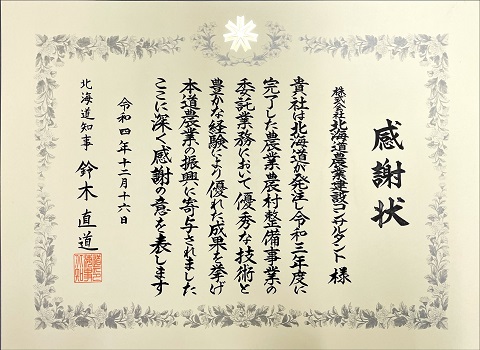 感謝状
株式会社北海道農業建設コンサルタント 様
貴社は北海道が発注し令和三年度に
完了した農業農村整備事業の
委託業務において優秀な技術と
豊かな経験により優れた成果を挙げ
本道農業の振興に寄与されました
ここに深く感謝の意を表します
令和四年十二月十六日
北海道知事 鈴木直道